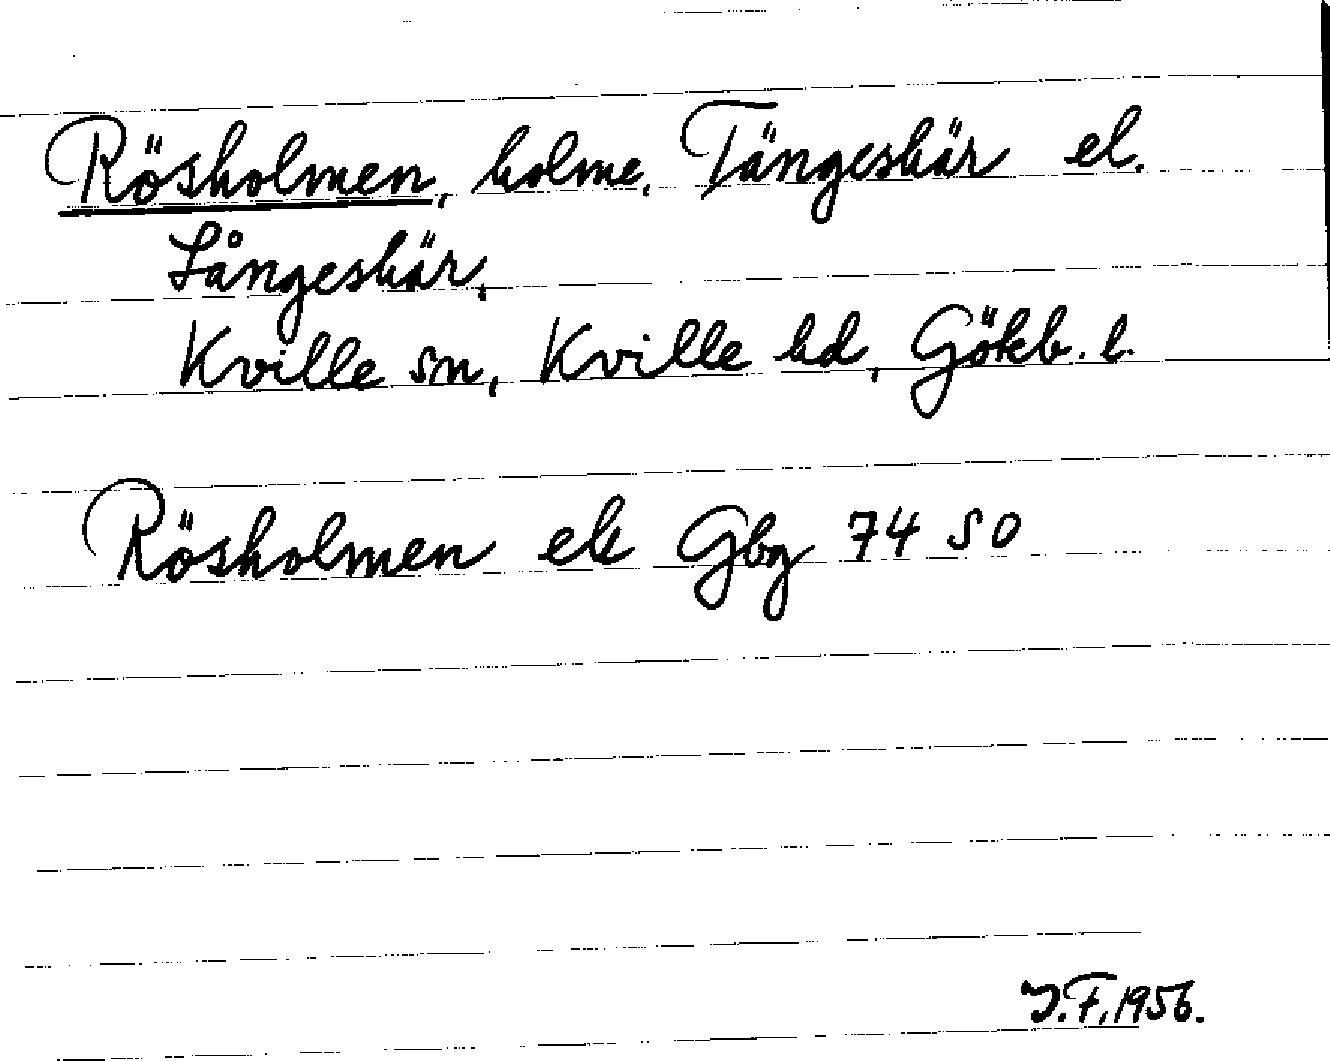 Rösholmen, holme, Tängeskär el.
Långeskär,
Kville sn, Kville hd, Göteb. l.
Rösholmen ek Gbg 74 SO
J.F. 1956.